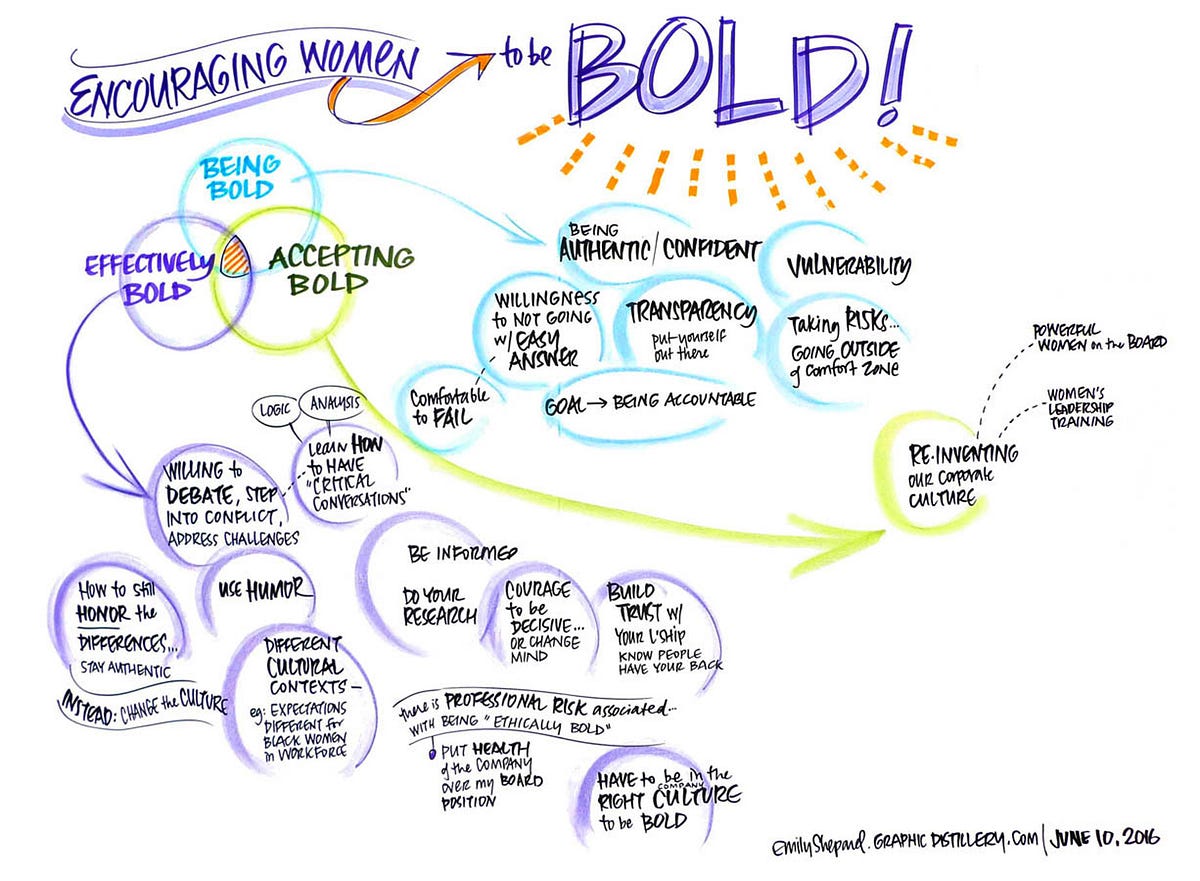 ENCOURAGING WOMEN
to be
BOLD!
BEING
BOLD
EFFECTIVELY
BOLD
ACCEPTING
BOLD
BEING
AUTHENTIC/CONFIDENT
VULNERABILITY
WILLINGNESS
to NOT GOING
w/ EASY
ANSWER
TRANSPARENCY
put yourself
out there
Taking RISKS...
GOING OUTSIDE
of Comfort ZONE
Comfortable
to FAIL
GOAL → BEING ACCOUNTABLE
POWERFUL
WOMEN on the BOARD
WOMEN'S
LEADERSHIP
TRAINING
RE-INVENTING
our Corporate
CULTURE
LOGIC
ANALYSIS
Learn HOW
to HAVE
"CRITICAL
CONVERSATIONS"
WILLING to
DEBATE, STEP
INTO CONFLICT,
ADDRESS CHALLENGES
How to still
HONOR the
DIFFERENCES...
STAY AUTHENTIC
INSTEAD: CHANGE the CULTURE
USE HUMOR
DIFFERENT
CULTURAL
CONTEXTS –
eg: EXPECTATIONS
DIFFERENT for
BLACK WOMEN
in WORKFORCE
BE INFORMED
DO YOUR
RESEARCH
COURAGE
to be
DECISIVE...
OR CHANGE
MIND
BUILD
TRUST w/
YOUR L'SHIP
KNOW PEOPLE
HAVE YOUR BACK
there is PROFESSIONAL RISK associated...
WITH BEING "ETHICALLY BOLD"
PUT HEALTH
of the COMPANY
OVER my BOARD
POSITION
HAVE to be in the
COMPANY
RIGHT CULTURE
to be BOLD
Emily Shepard. GRAPHIC DISTILLERY.COM | JUNE 10, 2016